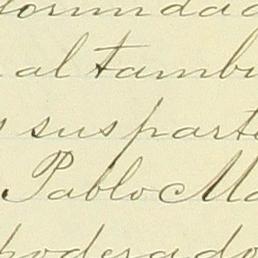 al tambi
sus parte
Pablo Ma
poderado